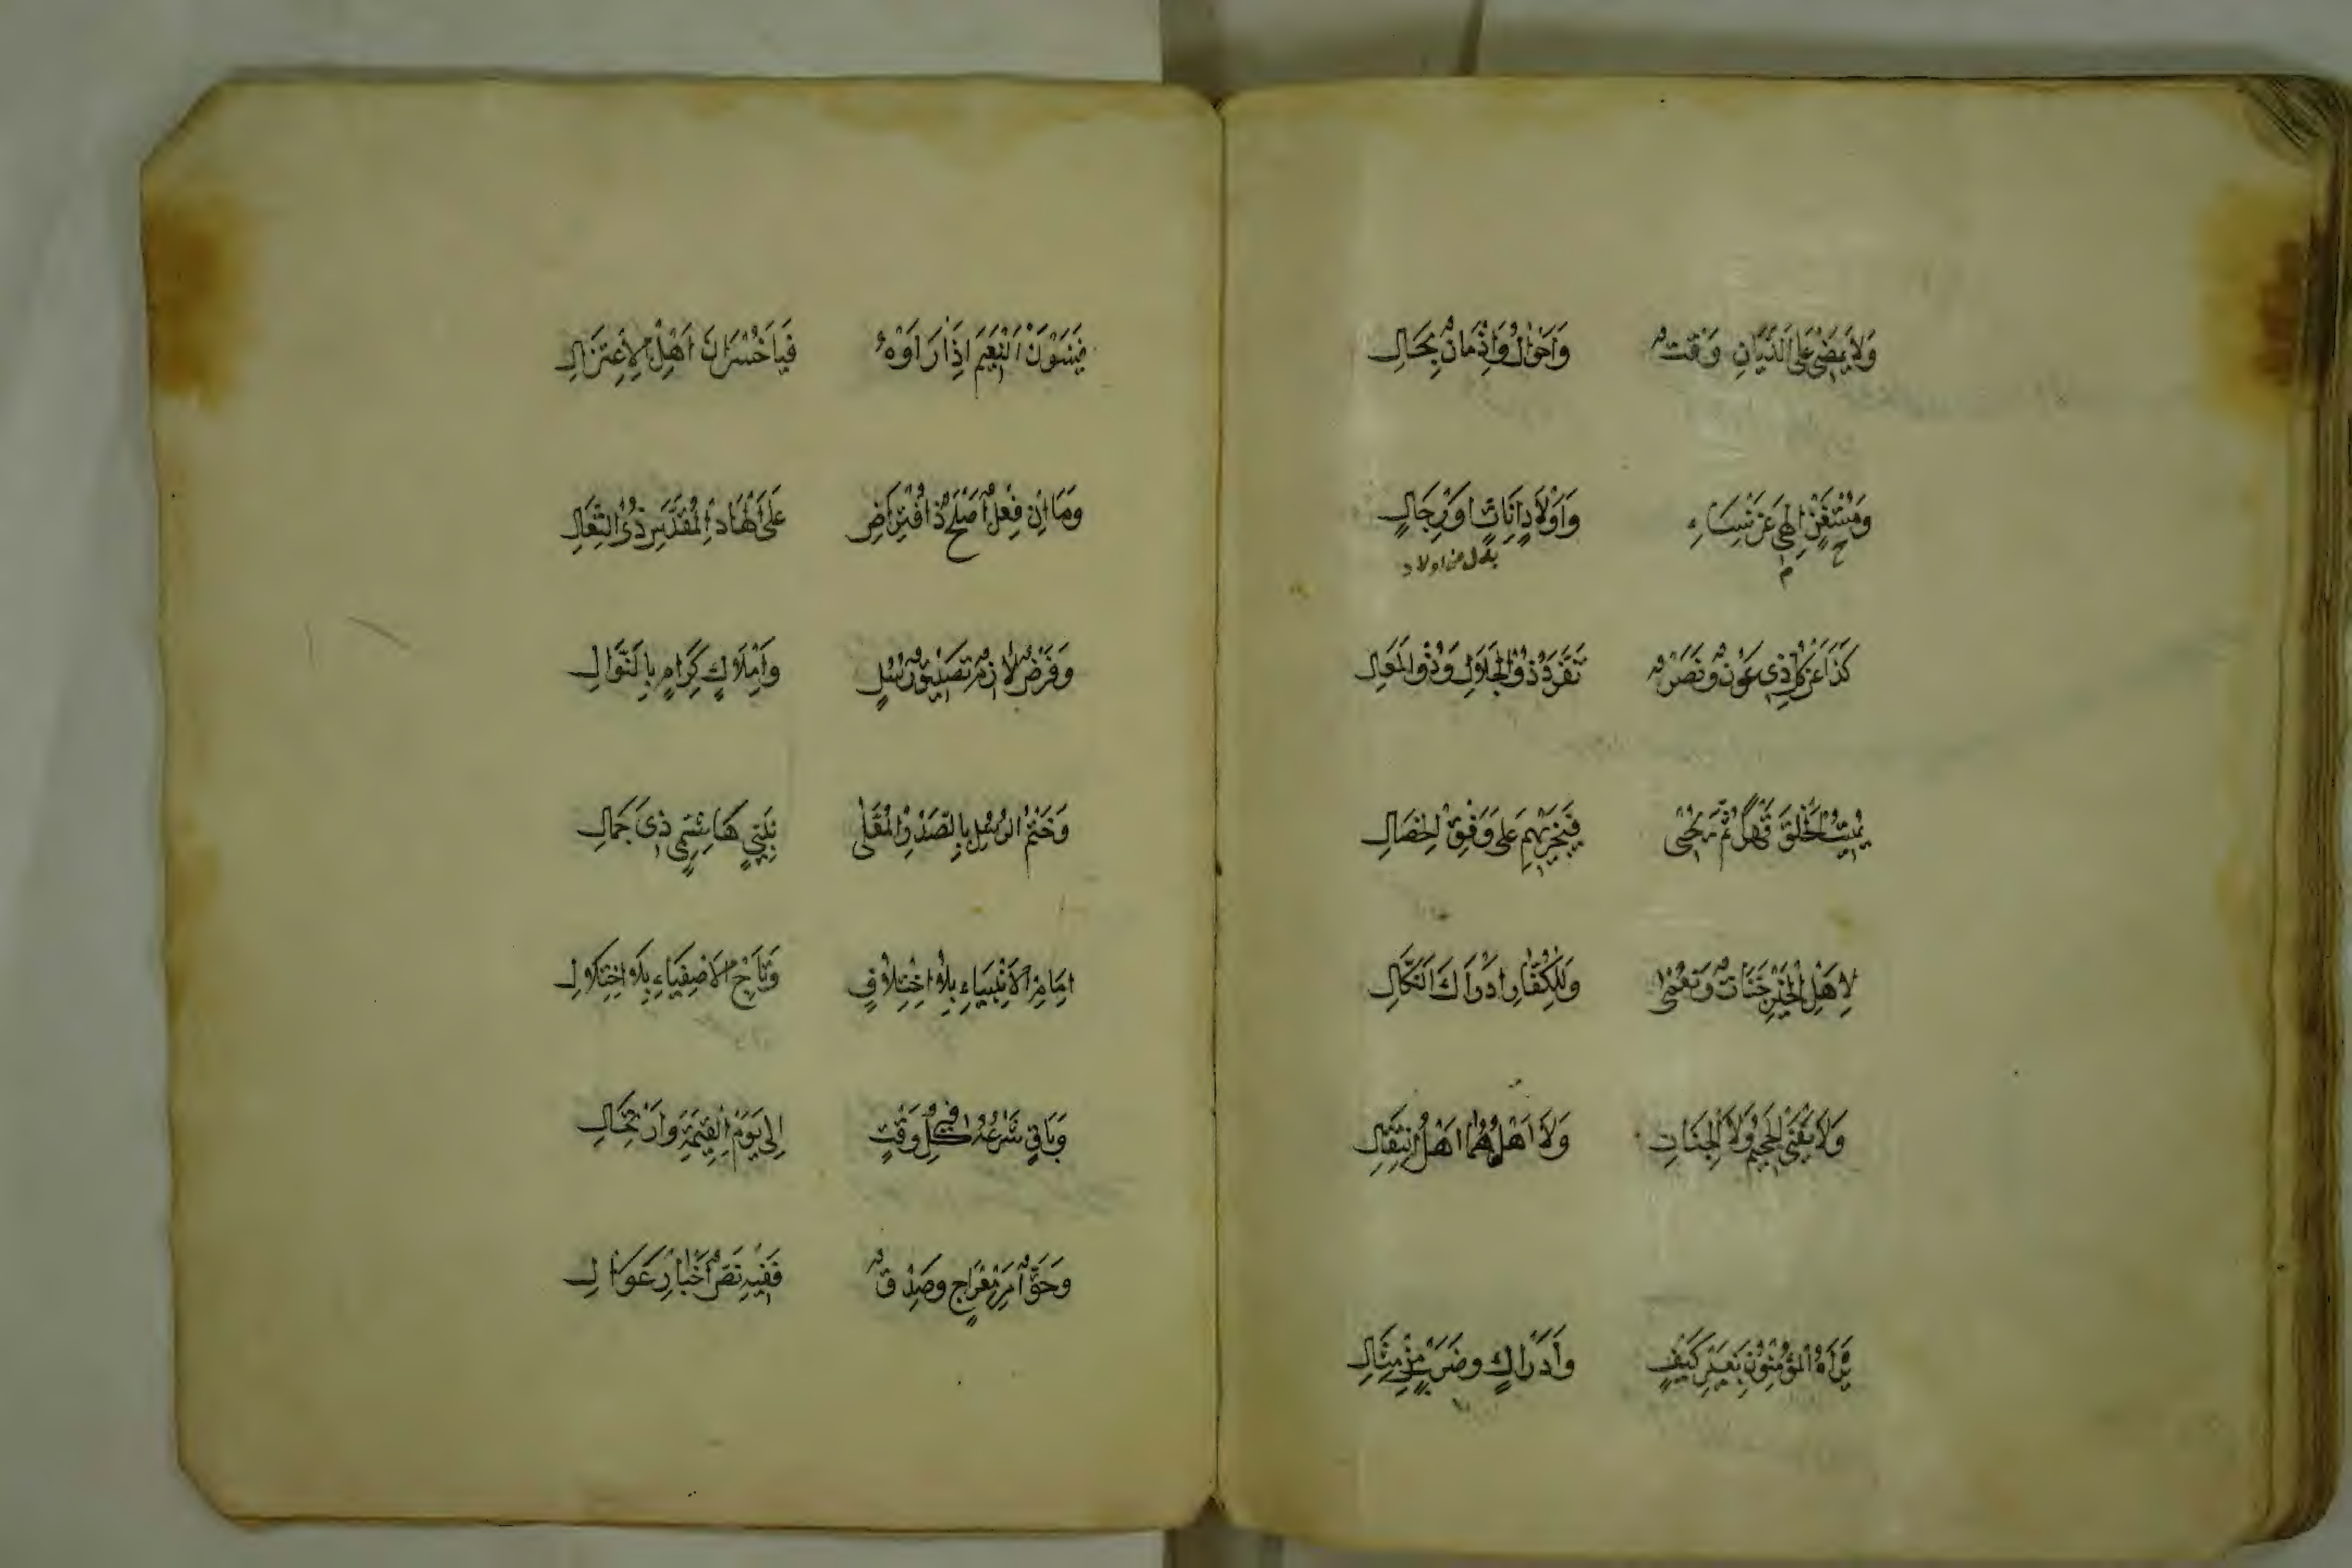 وَلَا يَمْضِي عَلَى الدَّيَّانِ وَقْتٌ وَاَحْوَالٌ وَاَزْمَانٌ بِحَالِ
وَمُسْتَغْنٍ اِلٰهِي عَنْ نِسَاءٍ وَاَوْلَادٍ اِنَاثٍ اَوْ رِجَالِ
بدل من اولاد
كَذَا عَنْ كُلِّ ذِي عَوْنٍ وَنَصْرٍ تَفَرَّدَ ذُو الْجَلَالِ وَذُو الْمَعَالِ
يُمِيتُ الْخَلْقَ قَهْرًا ثُمَّ يُحْيِى فَيَجْزِيهِمْ عَلَى وَفْقِ الْخِصَالِ
لِاَهْلِ الْخَيْرِ جَنَّاتٌ وَنُعْمٰى وَلِلْكُفَّارِ اِدْرَاكَ النَّكَالِ
وَلَا يَفْنَى الْجَحِيمُ وَلَا الْجِنَانِ وَلَا اَهْلُهُمَا اَهْلُ انْتِقَالِ
يَرَاهُ الْمُؤْمِنُونَ بِغَيْرِ كَيْفٍ وَاِدْرَاكٍ وَضَرْبٍ مِنْ مِثَالِ
فَيَنْسَوْنَ النَّعِيمَ اِذَا رَاَوْهُ فَيَا خُسْرَانَ اَهْلِ الْاِعْتِزَالِ
وَمَا اِنْ فِعْلٌ اَصْلَحُ ذَا افْتِرَاضٍ عَلَى الْهَادِ الْمُقَدَّسِ ذِى التَّعَالِ
وَفَرْضٌ لَازِمٌ تَصْدِيقُ رُسْلٍ وَاَمْلَاكٍ كِرَامٍ بِالنَّوَالِ
وَخَتْمُ الرُّسْلِ بِالصَّدْرِ الْمُعَلّٰى نَبِيٍّ هَاشِمِيٍّ ذِي جَمَالِ
اِمَامِ الْاَنْبِيَاءِ بِلَا اخْتِلَافٍ وَتَاجِ الْاَصْفِيَاءِ بِلَا اخْتِلَالِ
وَبَاقٍ شَرْعُهُ فِي كُلِّ وَقْتٍ اِلَى يَوْمِ الْقِيٰمَةِ وَارْتِحَالِ
وَحَقٌّ اَمْرُ مِعْرَاجٍ وَصِدْقٌ فَفِيهِ نَصُّ اَخْبَارٍ عَوَالِ